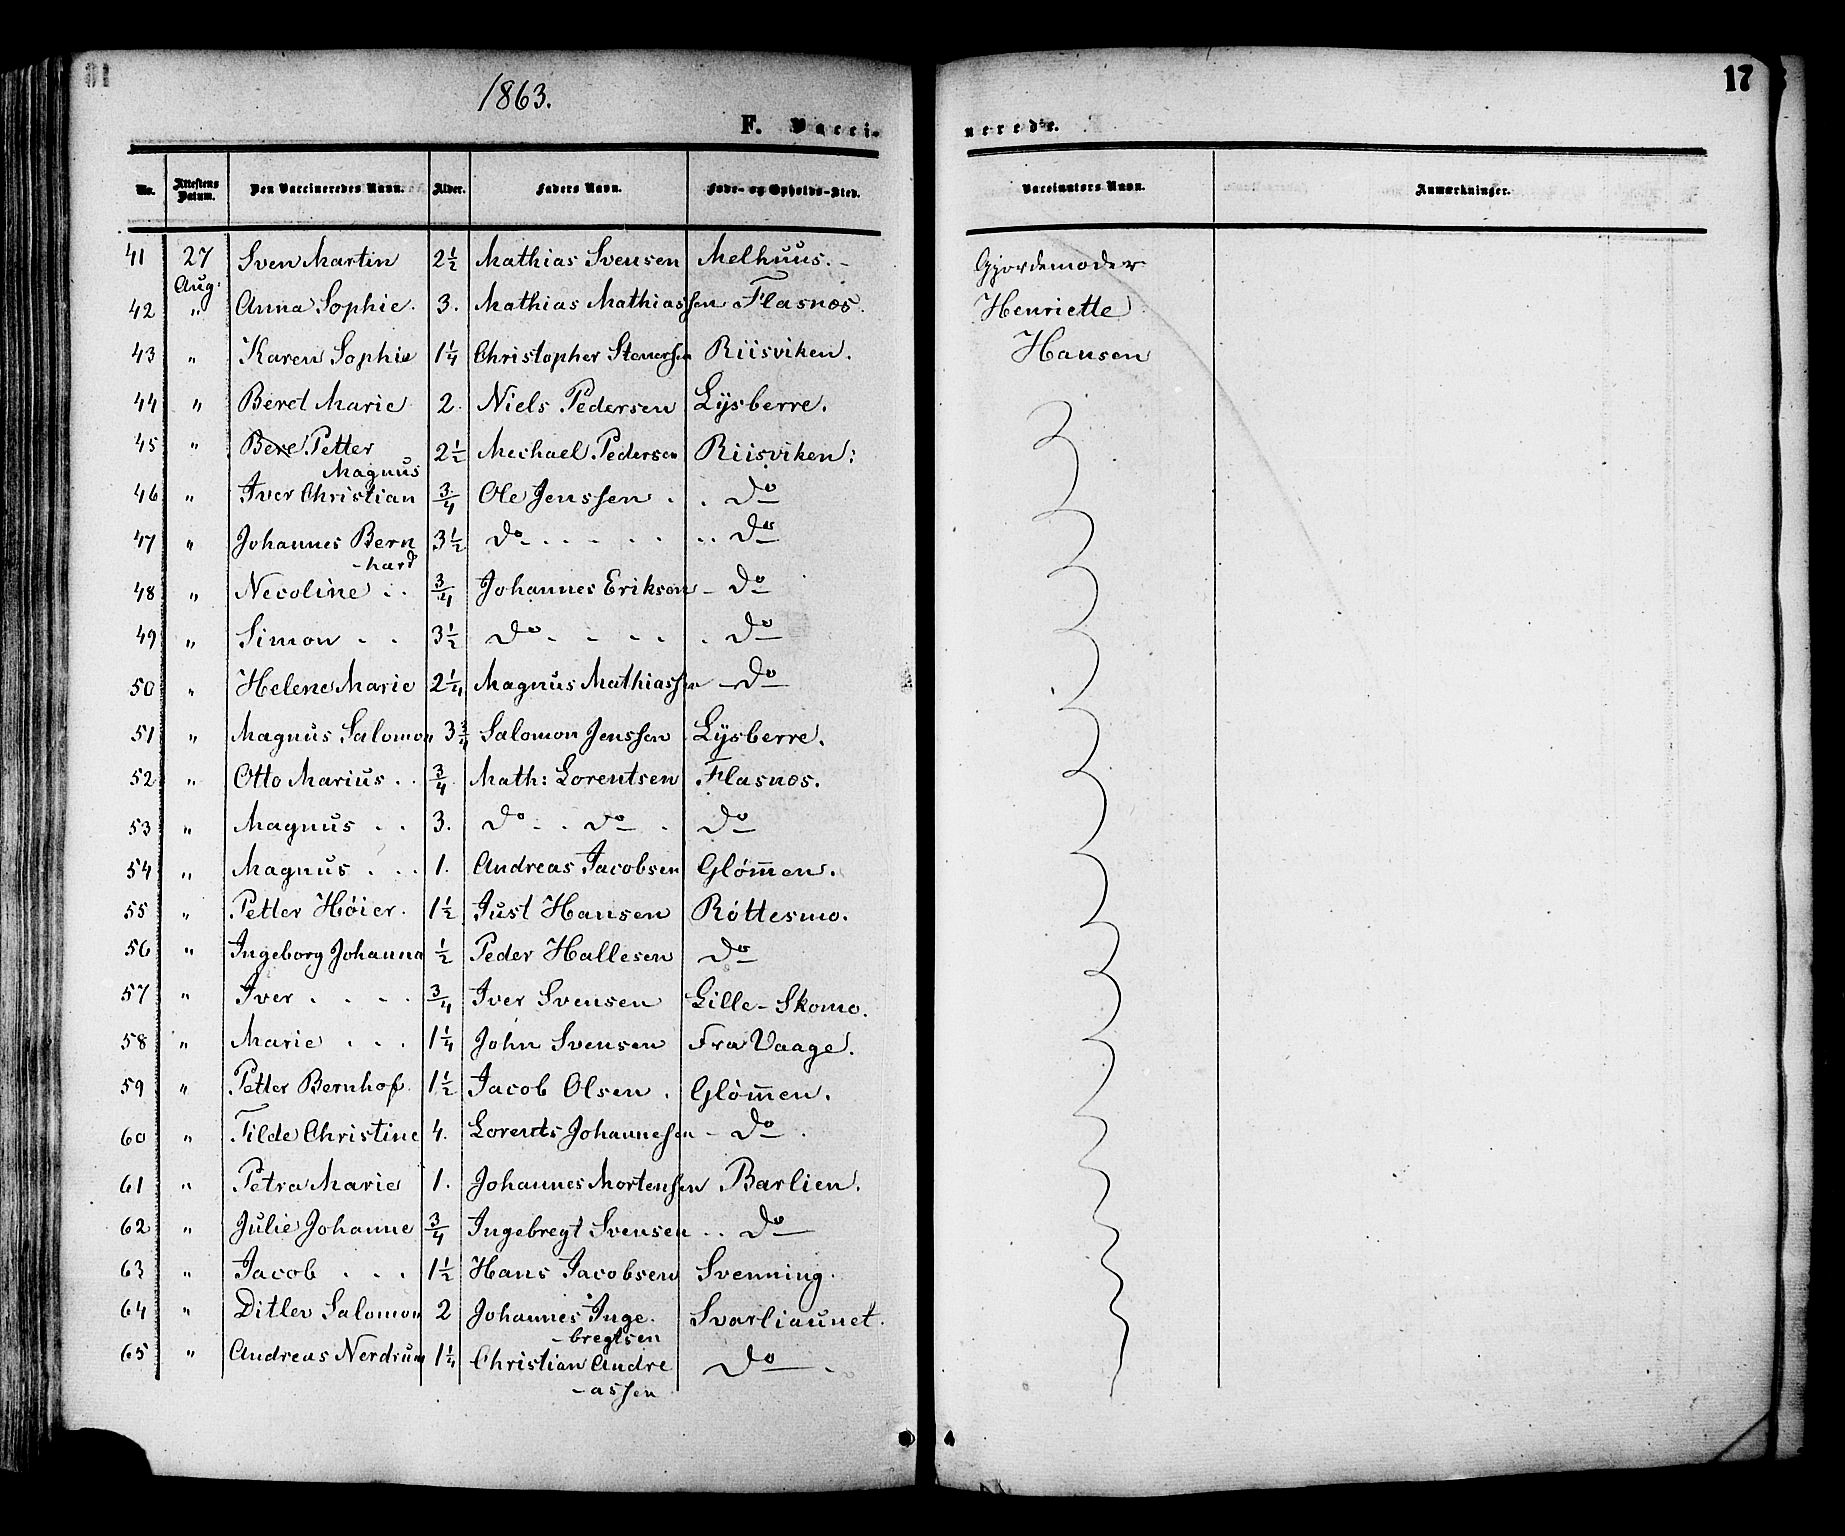 1863.
17
F. Vacci-
nerede.
No. | Attestens Datum. | Den Vaccineredes Navn. | Alder. | Faders Navn. | Føde- og Opholds-Sted. | Vaccinators Navn. | Anmærkninger.
41 | 27 Aug. | Sven Martin | 2½ | Mathias Svensen | Melhuus. | Gjordemoder
42 | " | Anna Sophie. | 3. | Mathias Mathiassen | Flasnæs. | Henriette
43 | " | Karen Sophie | 1¼ | Christopher Stenersen | Riisviken. | Hansen
44 | " | Beret Marie | 2. | Niels Pedersen | Lysberre.
45 | " | Bere Petter Magnus | 2½ | Mechael Pedersen | Riisviken:
46 | " | Iver Christian | ¾ | Ole Jenssen | Do
47 | " | Johannes Bern -hard | 3½ | Do | Do
48 | " | Necoline | ¾ | Johannes Eriksen | Do
49 | " | Simon | 3½ | Do | Do
50 | " | Helene Marie | 2¼ | Magnus Mathiassen | Do
51 | " | Magnus Salomon | 3¾ | Salomon Jenssen | Lysberre.
52 | " | Otto Marius | ¾ | Math: Lorentsen | Flasnæs.
53 | " | Magnus | 3. | Do Do | Do
54 | " | Magnus | 1. | Andreas Jacobsen | Glom̄en.
55 | " | Petter Høier. | 1½ | Just Hansen | Røttesmo.
56 | " | Ingeborg Johanna | ½ | Peder Hallesen | Do
57 | " | Iver | ¾ | Iver Svensen | Lille-Skomo.
58 | " | Marie | 1¼ | John Svensen | Fra Vaage.
59 | " | Petter Bernhof. | 1½ | Jacob Olsen. | Gløm̄en.
60 | " | Tilde Christine | 4. | Lorents Johannesen | Do
61 | " | Petra Marie | 1. | Johannes Mortensen | Barlien.
62 | " | Julie Johanne | ¾ | Ingebregt Svensen | Do
63 | " | Jacob | 1½ | Hans Jacobsen | Svenning.
64 | " | Ditlev Salomon | 2 | Johannes Inge. -bregtsen | Svarliaunet.
65 | " | Andreas Nerdrum | 1¼ | Christian Andre -assen | Do